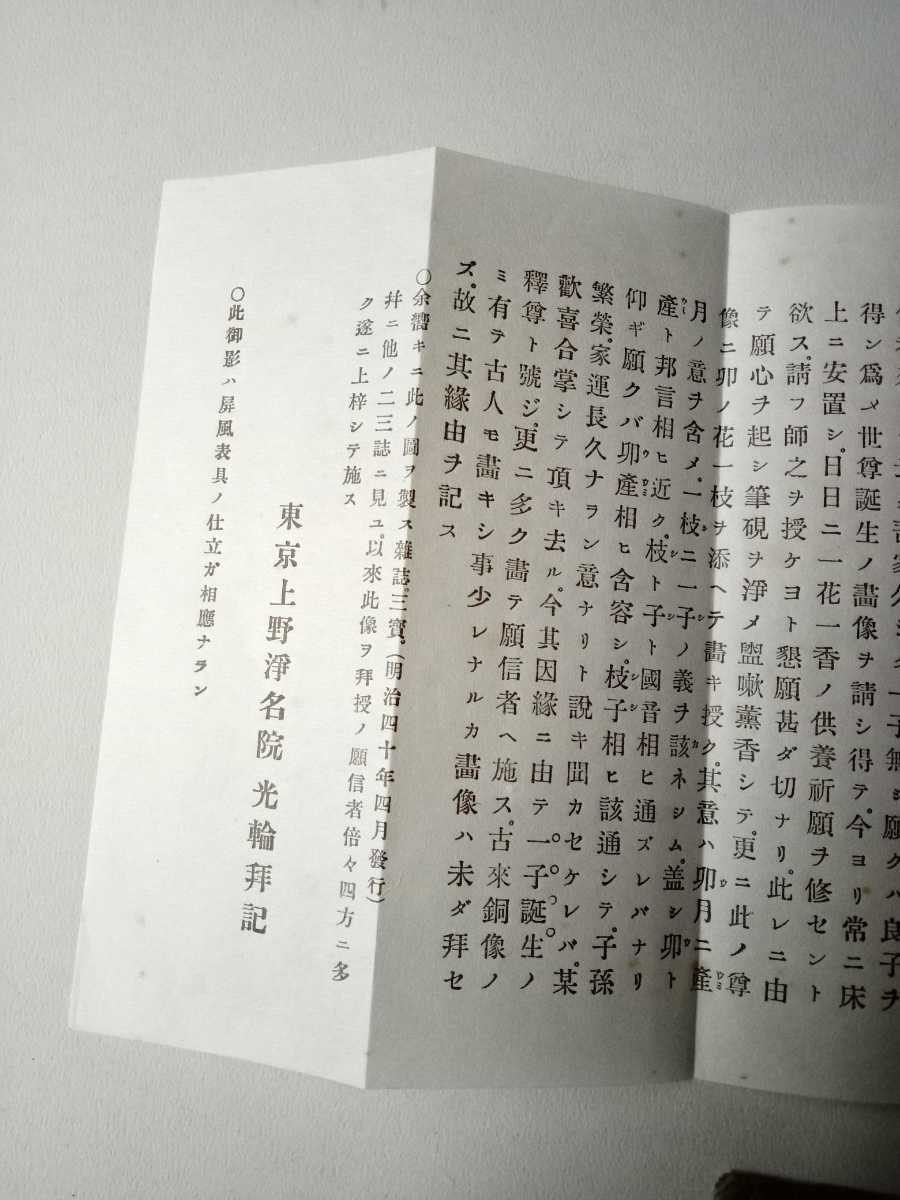 吾家久シク一子無シ願クハ良子ヲ
得ン爲メ世尊誕生ノ畫像ヲ請シ得テ。今ヨリ常ニ床
上ニ安置シ。日日ニ一花一香ノ供養祈願ヲ修セント
欲ス。請フ師之ヲ授ケヨト懇願甚ダ切ナリ。此レニ由
テ願心ヲ起シ筆硯ヲ淨メ盥嗽薰香シテ。更ニ此ノ尊
像ニ卯ノ花一枝ヲ添ヘテ畫キ授ク。其意ハ卯月ニ產
月ノ意ヲ含メ。一枝ニ一子ノ義ヲ該ネシム。蓋シ卯ト
產ト邦言相ヒ近ク。枝ト子ト國音相ヒ通ズレバナリ
仰ギ願クバ卯產相ヒ含容シ。枝子相ヒ該通シテ。子孫
繁榮。家運長久ナラン意ナリト說キ聞カセケレバ。某
歡喜合掌シテ頂キ去ル。今其因緣ニ由テ一子誕生ノ
釋尊ト號ジ。更ニ多ク畫テ願信者ヘ施ス。古來銅像ノ
ミ有テ古人モ畫キシ事少レナルカ畫像ハ未ダ拜セ
ズ。故ニ其緣由ヲ記ス
〇余嚮キニ此ノ圖ヲ製ス雜誌。三寶。(明治四十年四月發行)
幷ニ他ノ二三誌ニ見ユ。以來此像ヲ拜授ノ願信者倍々四方ニ多
ク遂ニ上梓シテ施ス
東京上野淨名院 光輪拜記
〇此御影ハ屏風表具ノ仕立ガ相應ナラン